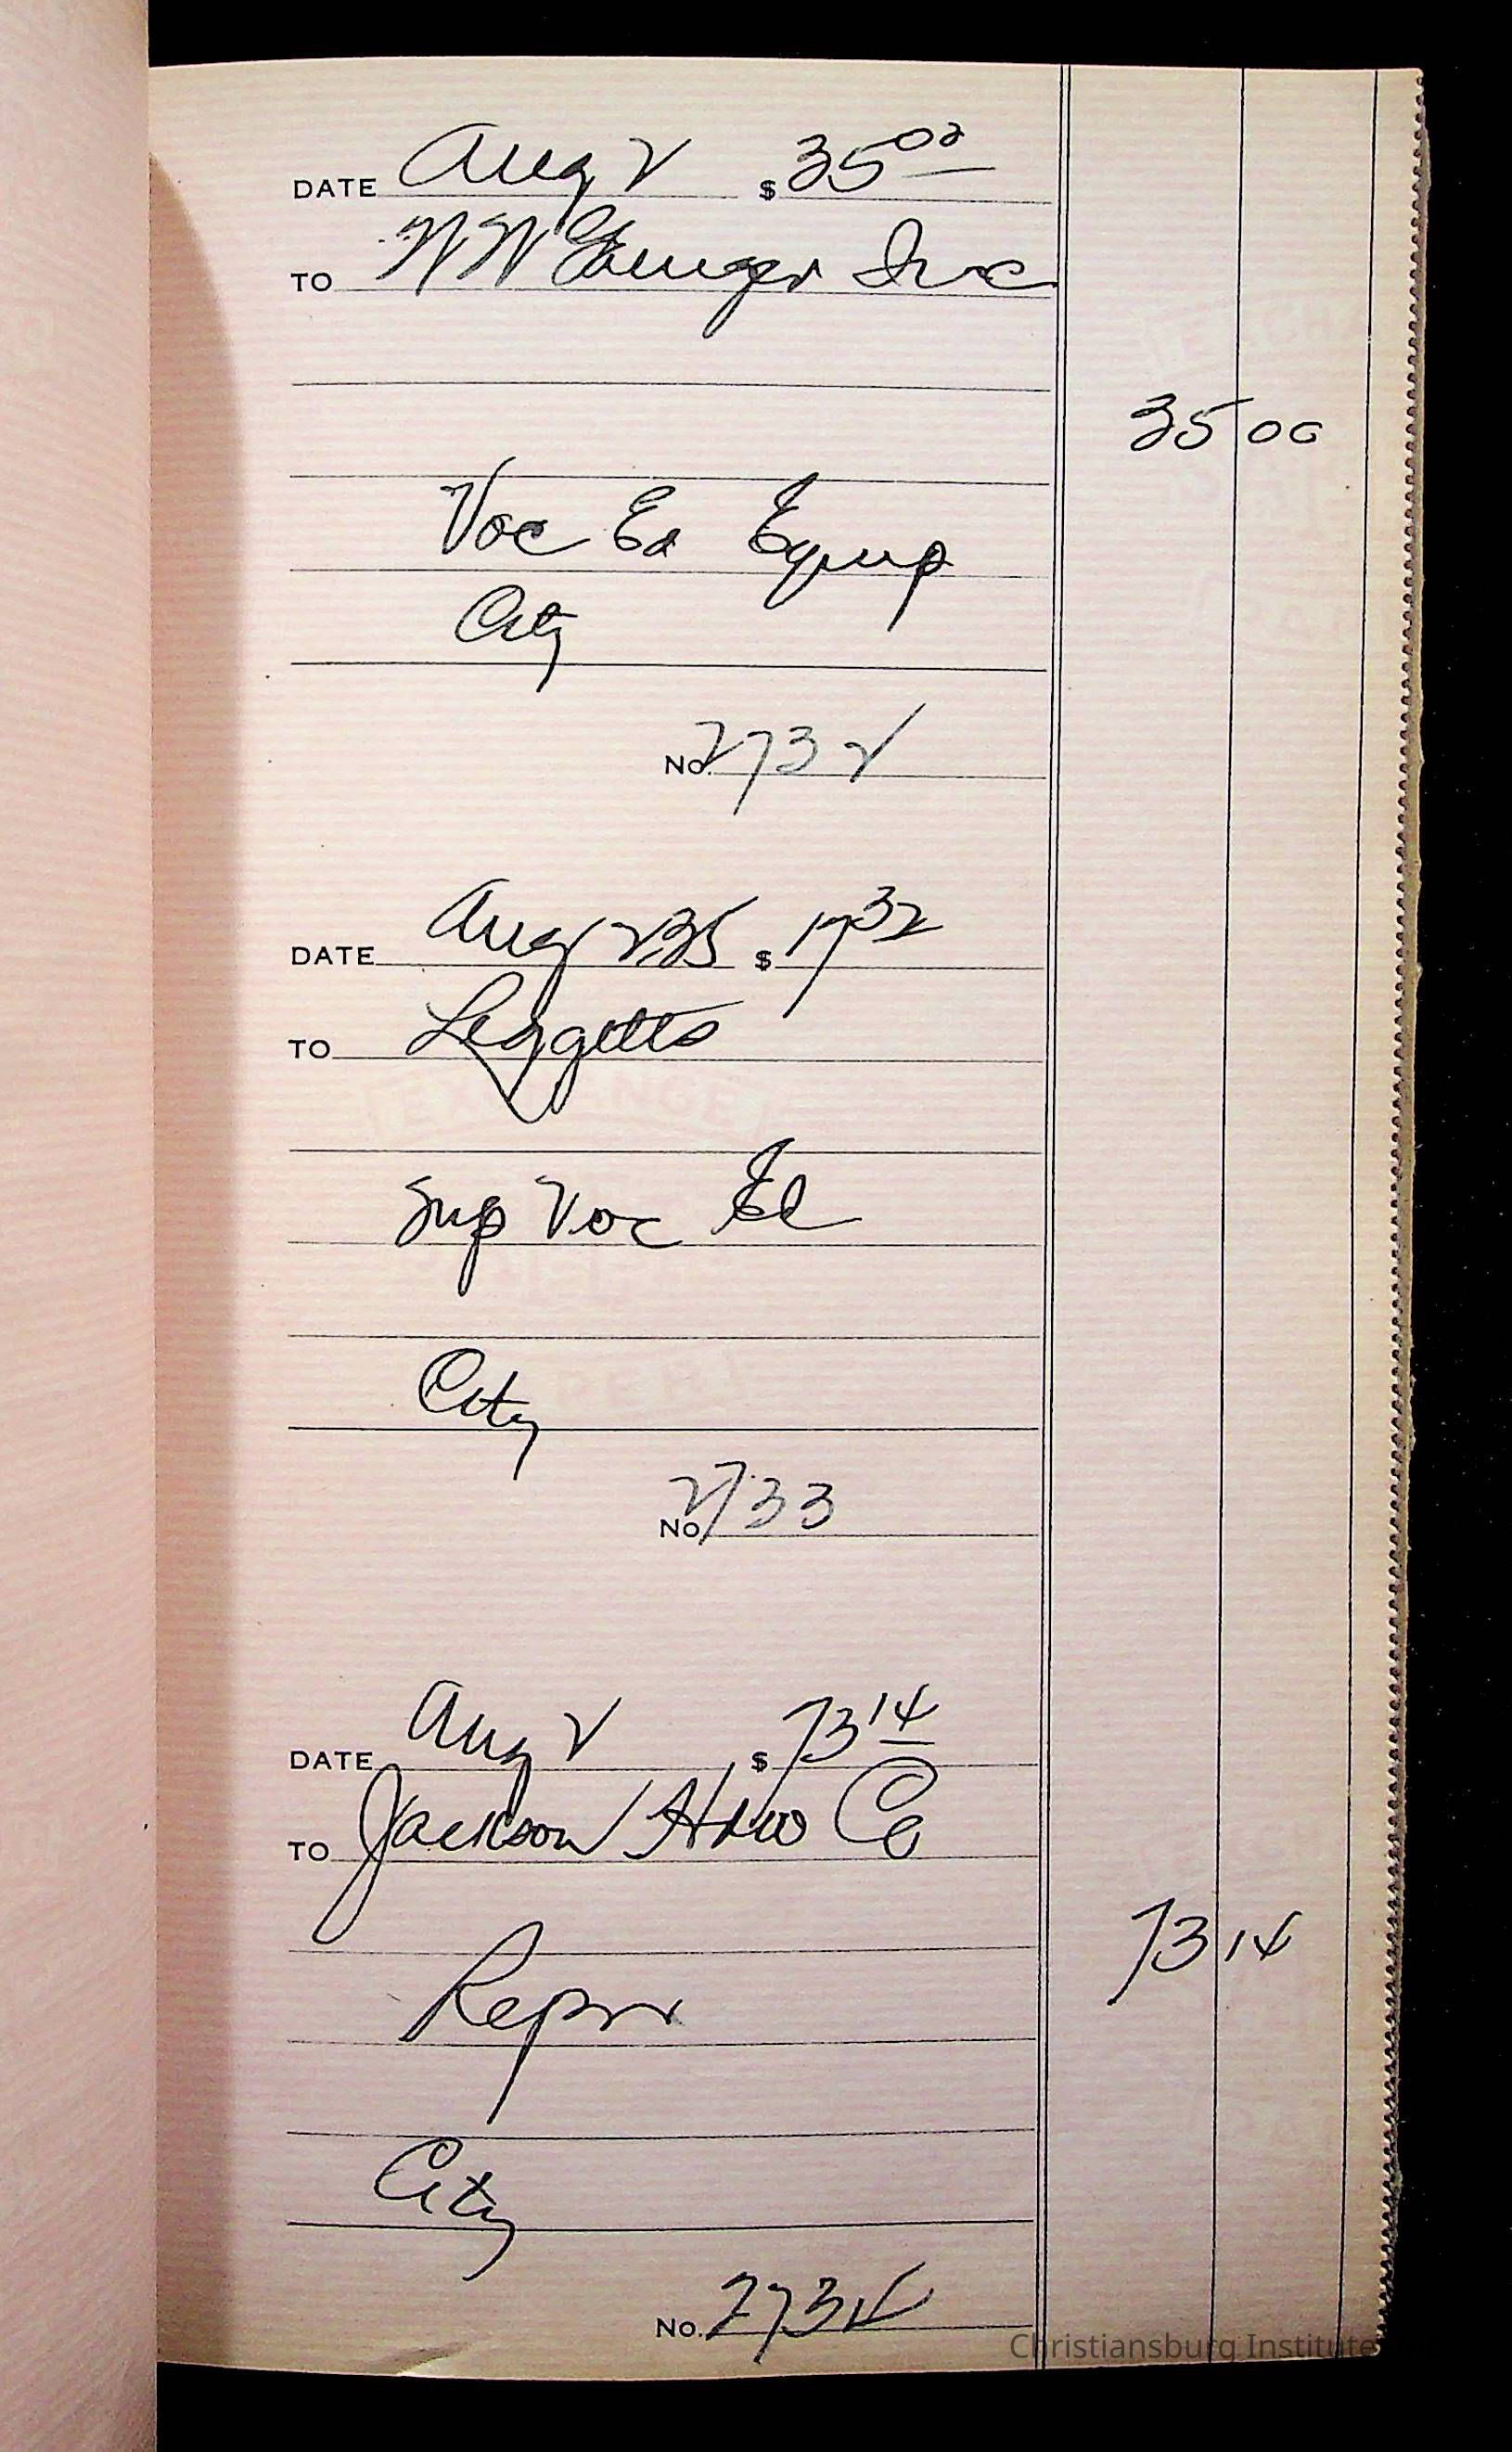 DATE Aug 2 $ 35 00
TO W W Grainger Inc
35 00
Voc Ed Equip
City
No. 2732
DATE Aug $ 17 32
TO Leggetts
Sup Voc Ed
City
No. 2733
DATE Aug 2 $ 73 14
TO Jackson Hdw Co
73 14
Repr
City
No. 2734
Christiansburg Institute